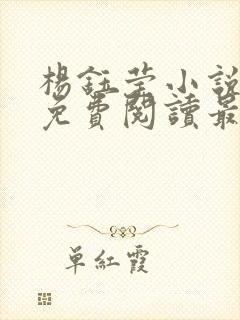 楊鈺莹小說
免費閱讀最
單紅霞